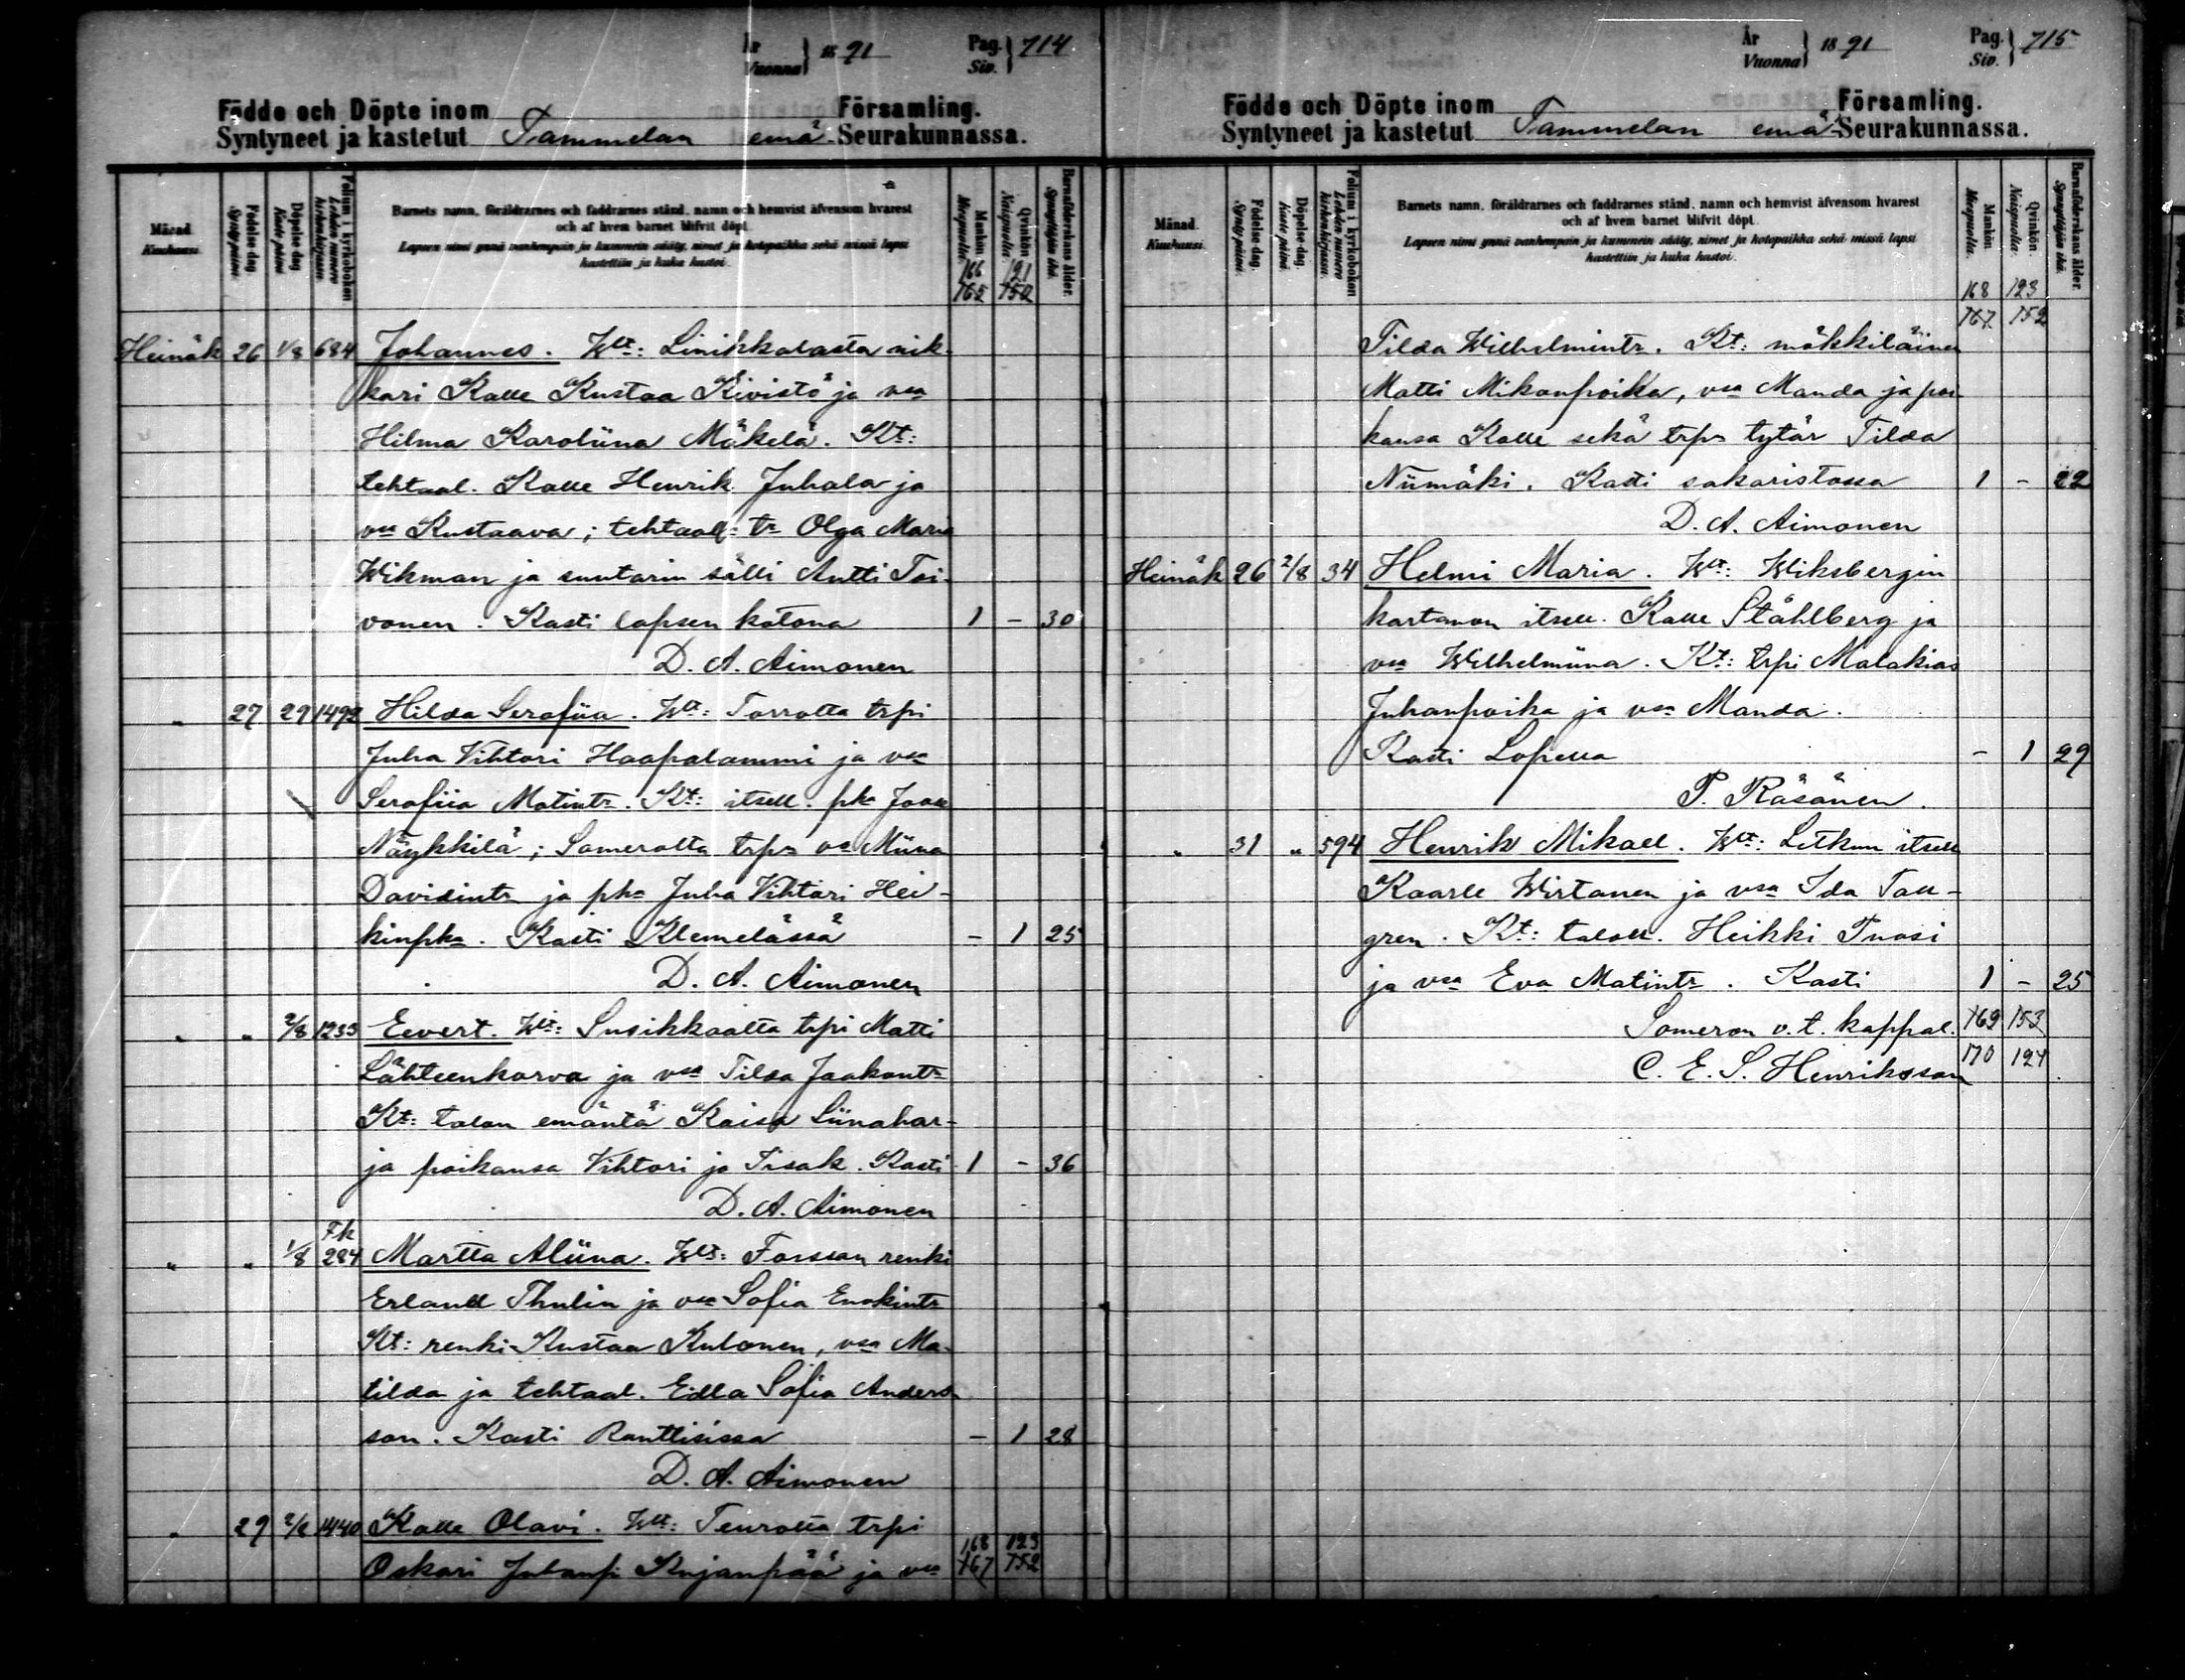 År
Vuonna } 1891 Pag.
Siv. } 714
Födde och Döpte inom Församling.
Syntyneet ja kastetut Tammelan emä-Seurakunnassa.
Månad. Kuukausi.
Födelse-dag. Synty päivä.
Döpelse-dag. Kaste päivä.
Folium i kyrkoboken Lehden numero kirkonkirjassa.
Barnets namn, föräldrarnes och faddrarnes stånd, namn och hemvist äfvensom hvarest
och af hvem barnet blifvit döpt.
Lapsen nimi ynnä vanhempain ja kummein sääty, nimet ja kotopaikka sekä missä lapsi
kastettiin ja kuka kastoi.
Mankön. Miespuolia.
Qvinkön. Naispuolia.
Barnaföderskans ålder. Synnyttäjän ikä.
166 121
165 150
Heinäk 26 1/8 684 Johannes. Wt: Linikkalasta nik-
kari Kalle Kustaa Kivistö ja vsa
Hilma Karoliina Mäkelä. Kt:
tehtaal. Kalle Henrik Juhala ja
vsa Kustaava; tehtaal: tr Olga Maria
Wikman ja suutarin sälli Antti Toi-
vonen. Kasti lapsen kotona 1 - 30
D. A. Aimonen
" 27 29 1492 Hilda Serafiia. Wt: Torrolta trpi
Juha Vihtori Haapalammi ja vsa
Serafiia Matintr. Kt: itsell. pka Joose
Näykkilä; Somerolta trpn va Miina
Davidintr ja pka Juha Vihtori Hei-
kinpka. Kasti Klemelässä - 1 25
D. A. Aimonen
" " 2/8 1233 Eevert. Wt: Susikkaalta trpi Matti
Lähteenkorva ja vsa Tilda Jaakontr
Kt: talon emäntä Kaisa Liinahar-
ja poikansa Vihtori ja Iisak. Kasti 1 - 36
D. A. Aimonen
Fk
" " 1/8 284 Martta Aliina. Wt: Forssan renki
Erland Thulin ja vsa Sofia Enokintr
Kt: renki Kustaa Kulonen, vsa Ma-
tilda ja tehtaal. Edla Sofia Anders-
son. Kasti Ranttisissa - 1 28
D. A. Aimonen
" 29 2/8 1440 Kalle Olavi. Wt: Teurolta trpi
Oskari Juhanp. Kujanpää ja vsa
168 123
167 152
År
Vuonna } 1891 Pag.
Siv. } 715
Födde och Döpte inom Församling.
Syntyneet ja kastetut Tammelan emä-Seurakunnassa.
Månad. Kuukausi.
Födelse-dag. Synty päivä.
Döpelse-dag. Kaste päivä.
Folium i kyrkoboken Lehden numero kirkonkirjassa.
Barnets namn, föräldrarnes och faddrarnes stånd, namn och hemvist äfvensom hvarest
och af hvem barnet blifvit döpt.
Lapsen nimi ynnä vanhempain ja kummein sääty, nimet ja kotopaikka sekä missä lapsi
kastettiin ja kuka kastoi.
Mankön. Miespuolia.
Qvinkön. Naispuolia.
Barnaföderskans ålder. Synnyttäjän ikä.
168 123
167 152
Tilda Wilhelmintr. Kt: mökkiläinen
Matti Mikonpoika, vsa Manda ja poi-
kansa Kalle sekä trpn tytär Tilda
Niimäki. Kasti sakaristossa 1 - 22
D. A. Aimonen
Heinäk 26 2/8 34 Helmi Maria. Wt: Wiksbergin
kartanon itsell. Kalle Ståhlberg ja
vsa Wilhelmiina. Kt: trpi Malakias
Juhanpoika ja vsa Manda.
Kasti Lopella - 1 29
P. Räsänen.
" 31 " 594 Henrik Mikael. Wt: Letkun itsell
Kaarle Wirtanen ja vsa Ida Tall-
gren. Kt: taloll. Heikki Tuosi
ja vsa Eva Matintr. Kasti 1 - 25
Someron v. t. kappal. 169 153
C. E. S. Henriksson 170 124